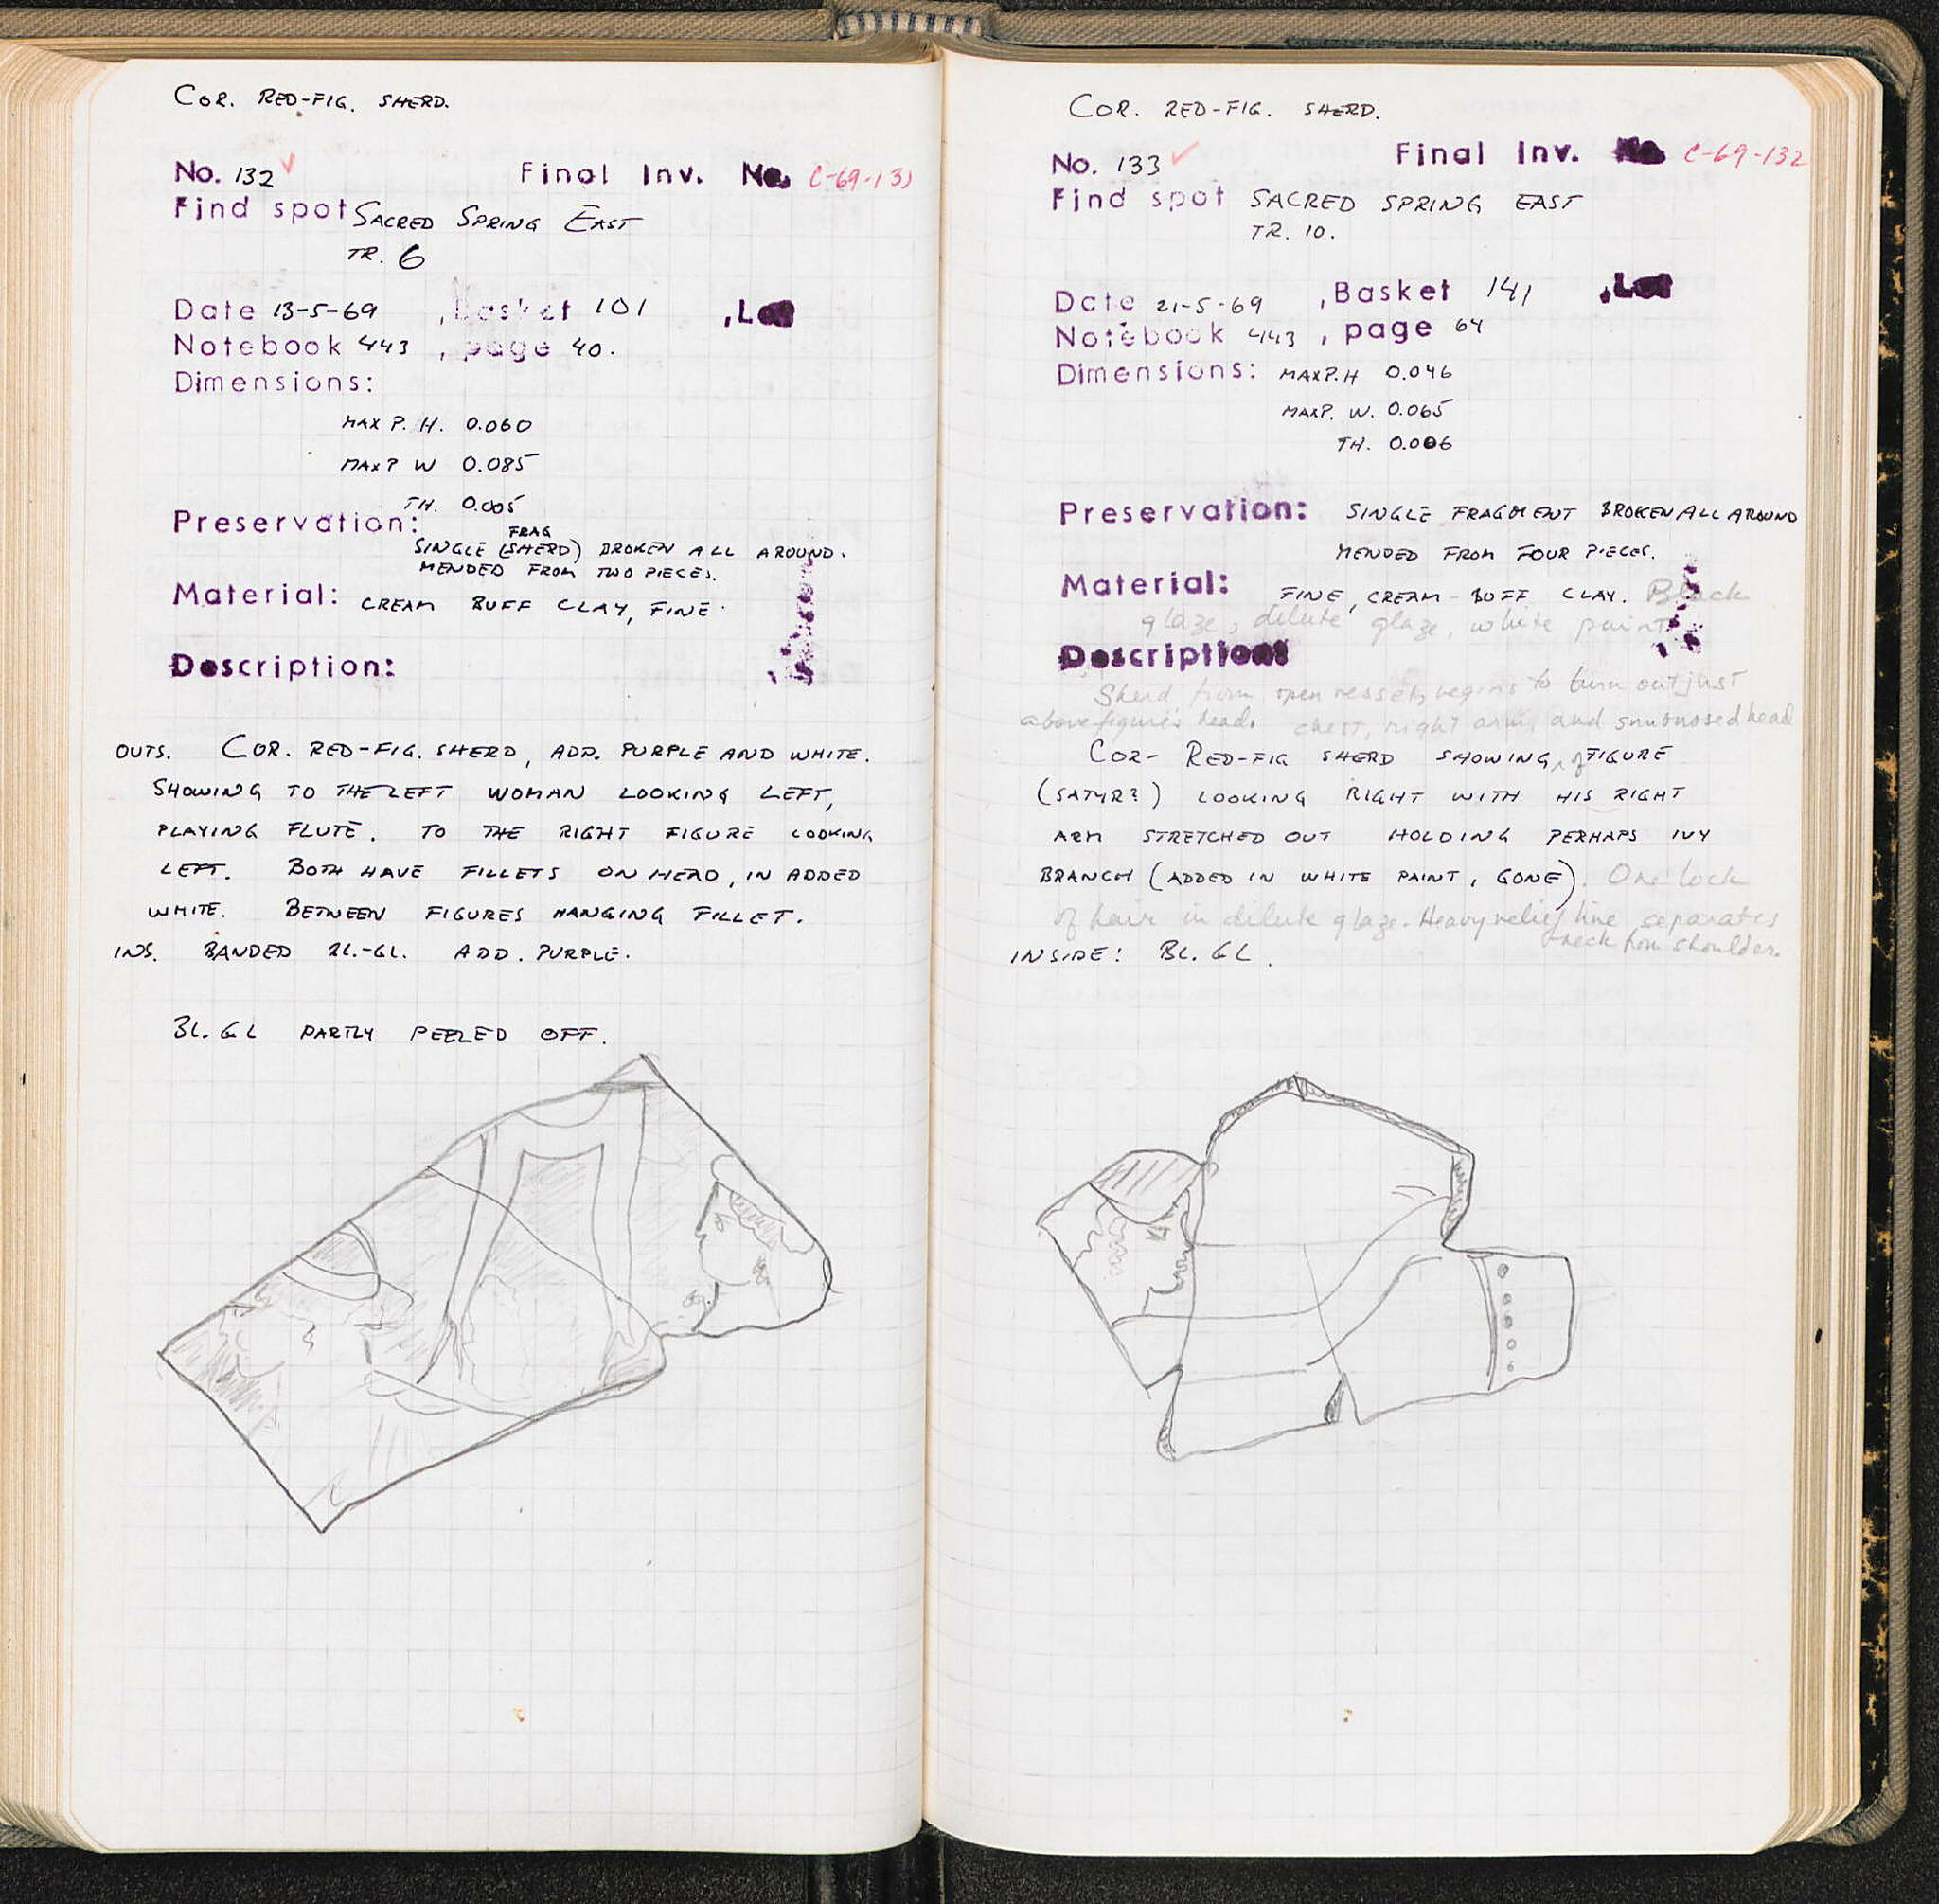 COR. RED-FIG. SHERD.
No. 132 ✓ Final Inv. No. C-69-131
Find spot SACRED SPRING EAST
TR. 6
Date 13-5-69 , Basket 101 , Lot
Notebook 443 , page 40.
Dimensions:
MAX P. H. 0.060
MAX P W 0.085
TH. 0.005
Preservation:
FRAG
SINGLE (SHERD) BROKEN ALL AROUND.
MENDED FROM TWO PIECES.
Material: CREAM BUFF CLAY, FINE.
Description:
OUTS. COR. RED-FIG. SHERD, ADD. PURPLE AND WHITE.
SHOWING TO THE LEFT WOMAN LOOKING LEFT,
PLAYING FLUTE. TO THE RIGHT FIGURE LOOKING
LEFT. BOTH HAVE FILLETS ON HEAD, IN ADDED
WHITE. BETWEEN FIGURES HANGING FILLET.
INS. BANDED BL.-GL. ADD. PURPLE.
BL. GL PARTLY PEELED OFF.
COR. RED-FIG. SHERD.
No. 133 ✓ Final Inv. No. C-69-132
Find spot SACRED SPRING EAST
TR. 10.
Date 21-5-69 , Basket 141 , Lot
Notebook 443 , page 64
Dimensions: MAX P. H 0.046
MAX P. W. 0.065
TH. 0.006
Preservation: SINGLE FRAGMENT BROKEN ALL AROUND
MENDED FROM FOUR PIECES.
Material: FINE, CREAM-BUFF CLAY. Black
glaze, dilute glaze, white paint.
Description:
Sherd from open vessel, begins to turn out just
above figure's head. chest, right arm, and snubnosed head
COR- RED-FIG SHERD SHOWING of FIGURE
(SATYR?) LOOKING RIGHT WITH HIS RIGHT
ARM STRETCHED OUT HOLDING PERHAPS IVY
BRANCH (ADDED IN WHITE PAINT, GONE). One lock
of hair in dilute glaze. Heavy relief line separates
neck from shoulder.
INSIDE: BL. GL.